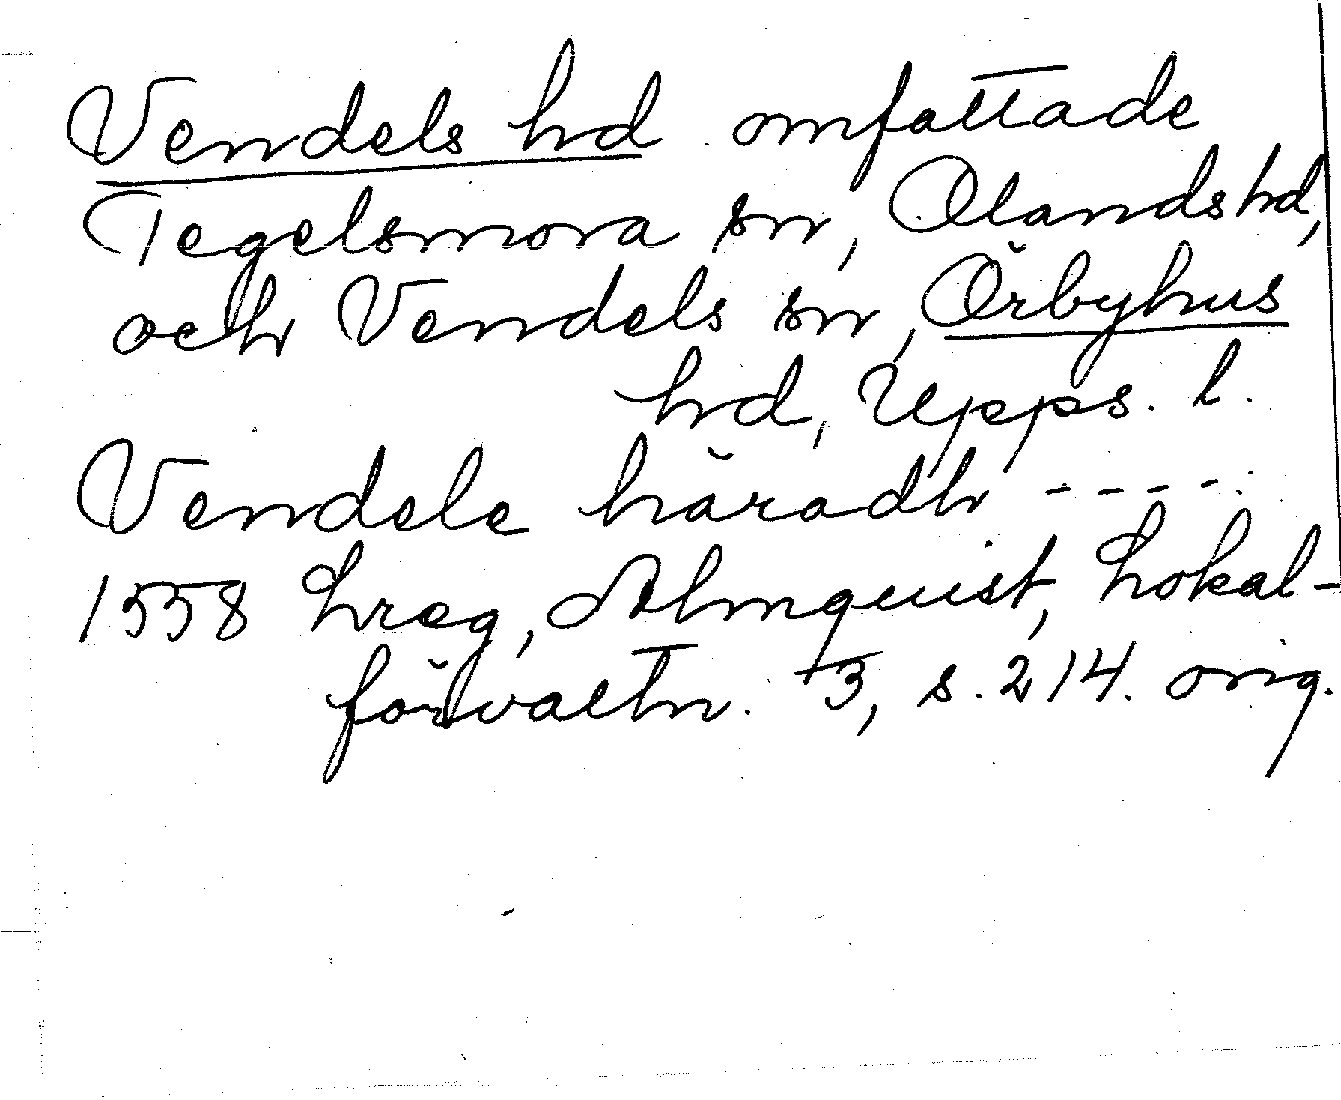 Vendels hd omfattade
Tegelsmora sn, Olands hd,
och Vendels sn, Örbyhus
hd, Upps. l.
Vendele häradh ----.
1558 hreg, Almquist, Lokal-
förvaltn. 3, s. 214. orig.